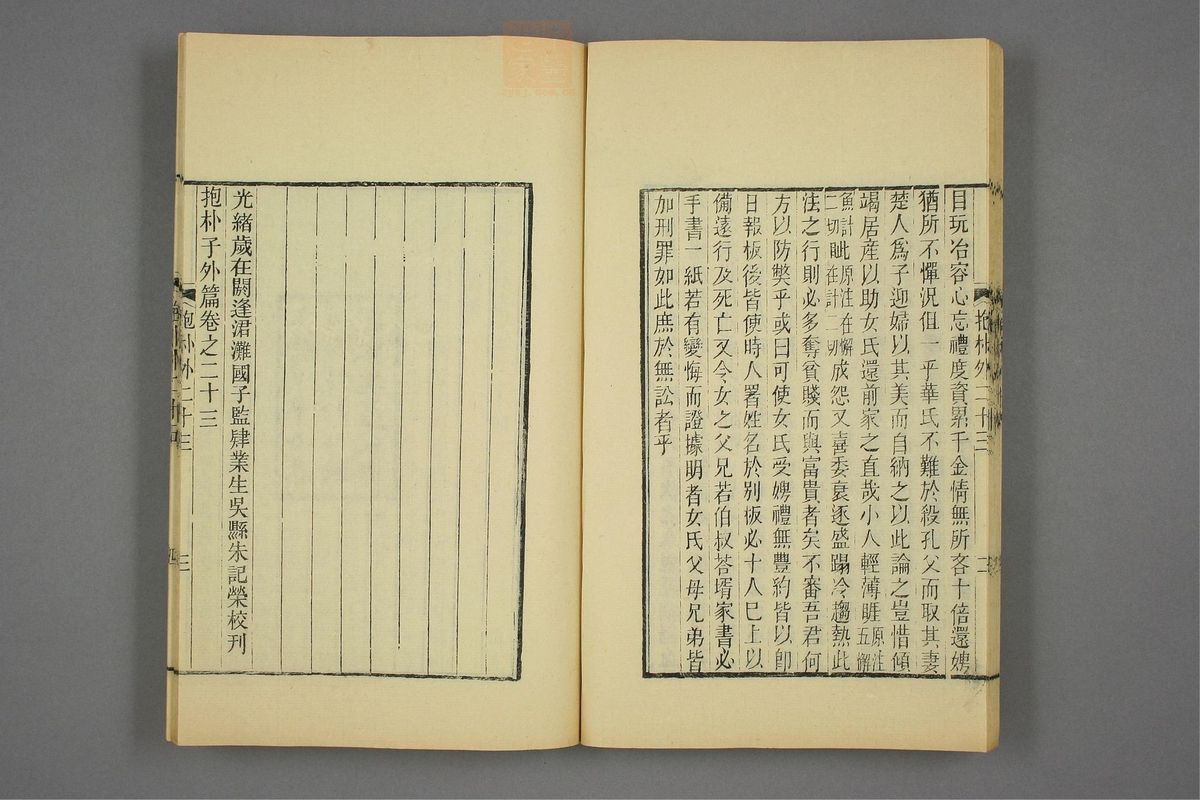 抱朴外二十三
二
目玩冶容心忘禮度資累千金情無所吝十倍還娉
猶所不憚況但一乎華氏不難於殺孔父而取其妻
楚人爲子迎婦以其美而自納之以此論之豈惜傾
竭居產以助女氏還前家之直哉小人輕薄睚原注五解
魚計此原注在懈二切眦在計二切成怨又喜委衰逐盛蹋冷趨熱此
法之行則必多奪貧賤而與富貴者矣不審吾君何
方以防弊乎或曰可使女氏受娉禮無豐約皆以卽
日報板後皆使時人署姓名於別板必十人巳上以
備遠行及死亡又令女之父兄若伯叔荅壻家書必
手書一紙若有變悔而證據明者女氏父母兄弟皆
加刑罪如此庶於無訟者乎
光緒歲在閼逢涒灘國子監肄業生吳縣朱記榮校刊
抱朴子外篇卷之二十三
抱朴外二十三
三